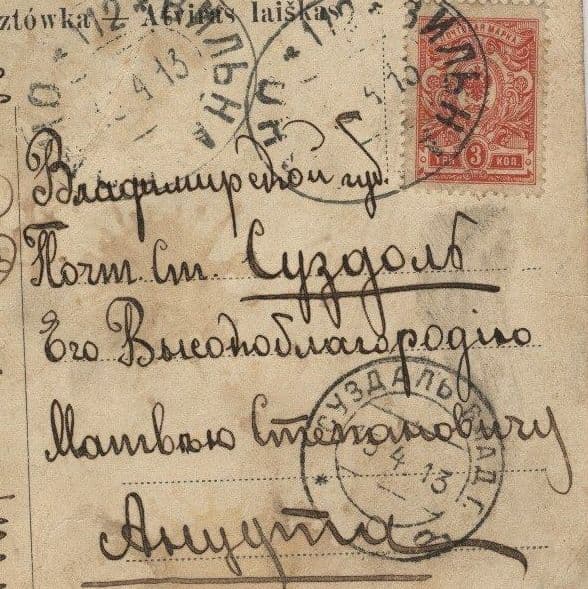 ztówka — Atviras laiškas
112 * ВИЛЬНА
4 13
112 * ВИЛЬН
ПОЧТОВАЯ МАРКА
ТРИ 3 КОП.
Владимирской губ.
Почт. Ст. Суздоль
Его Высокоблагородію
Матвѣю Степановичу
СУЗДАЛЬ ВЛАД. Г.
5 4 13